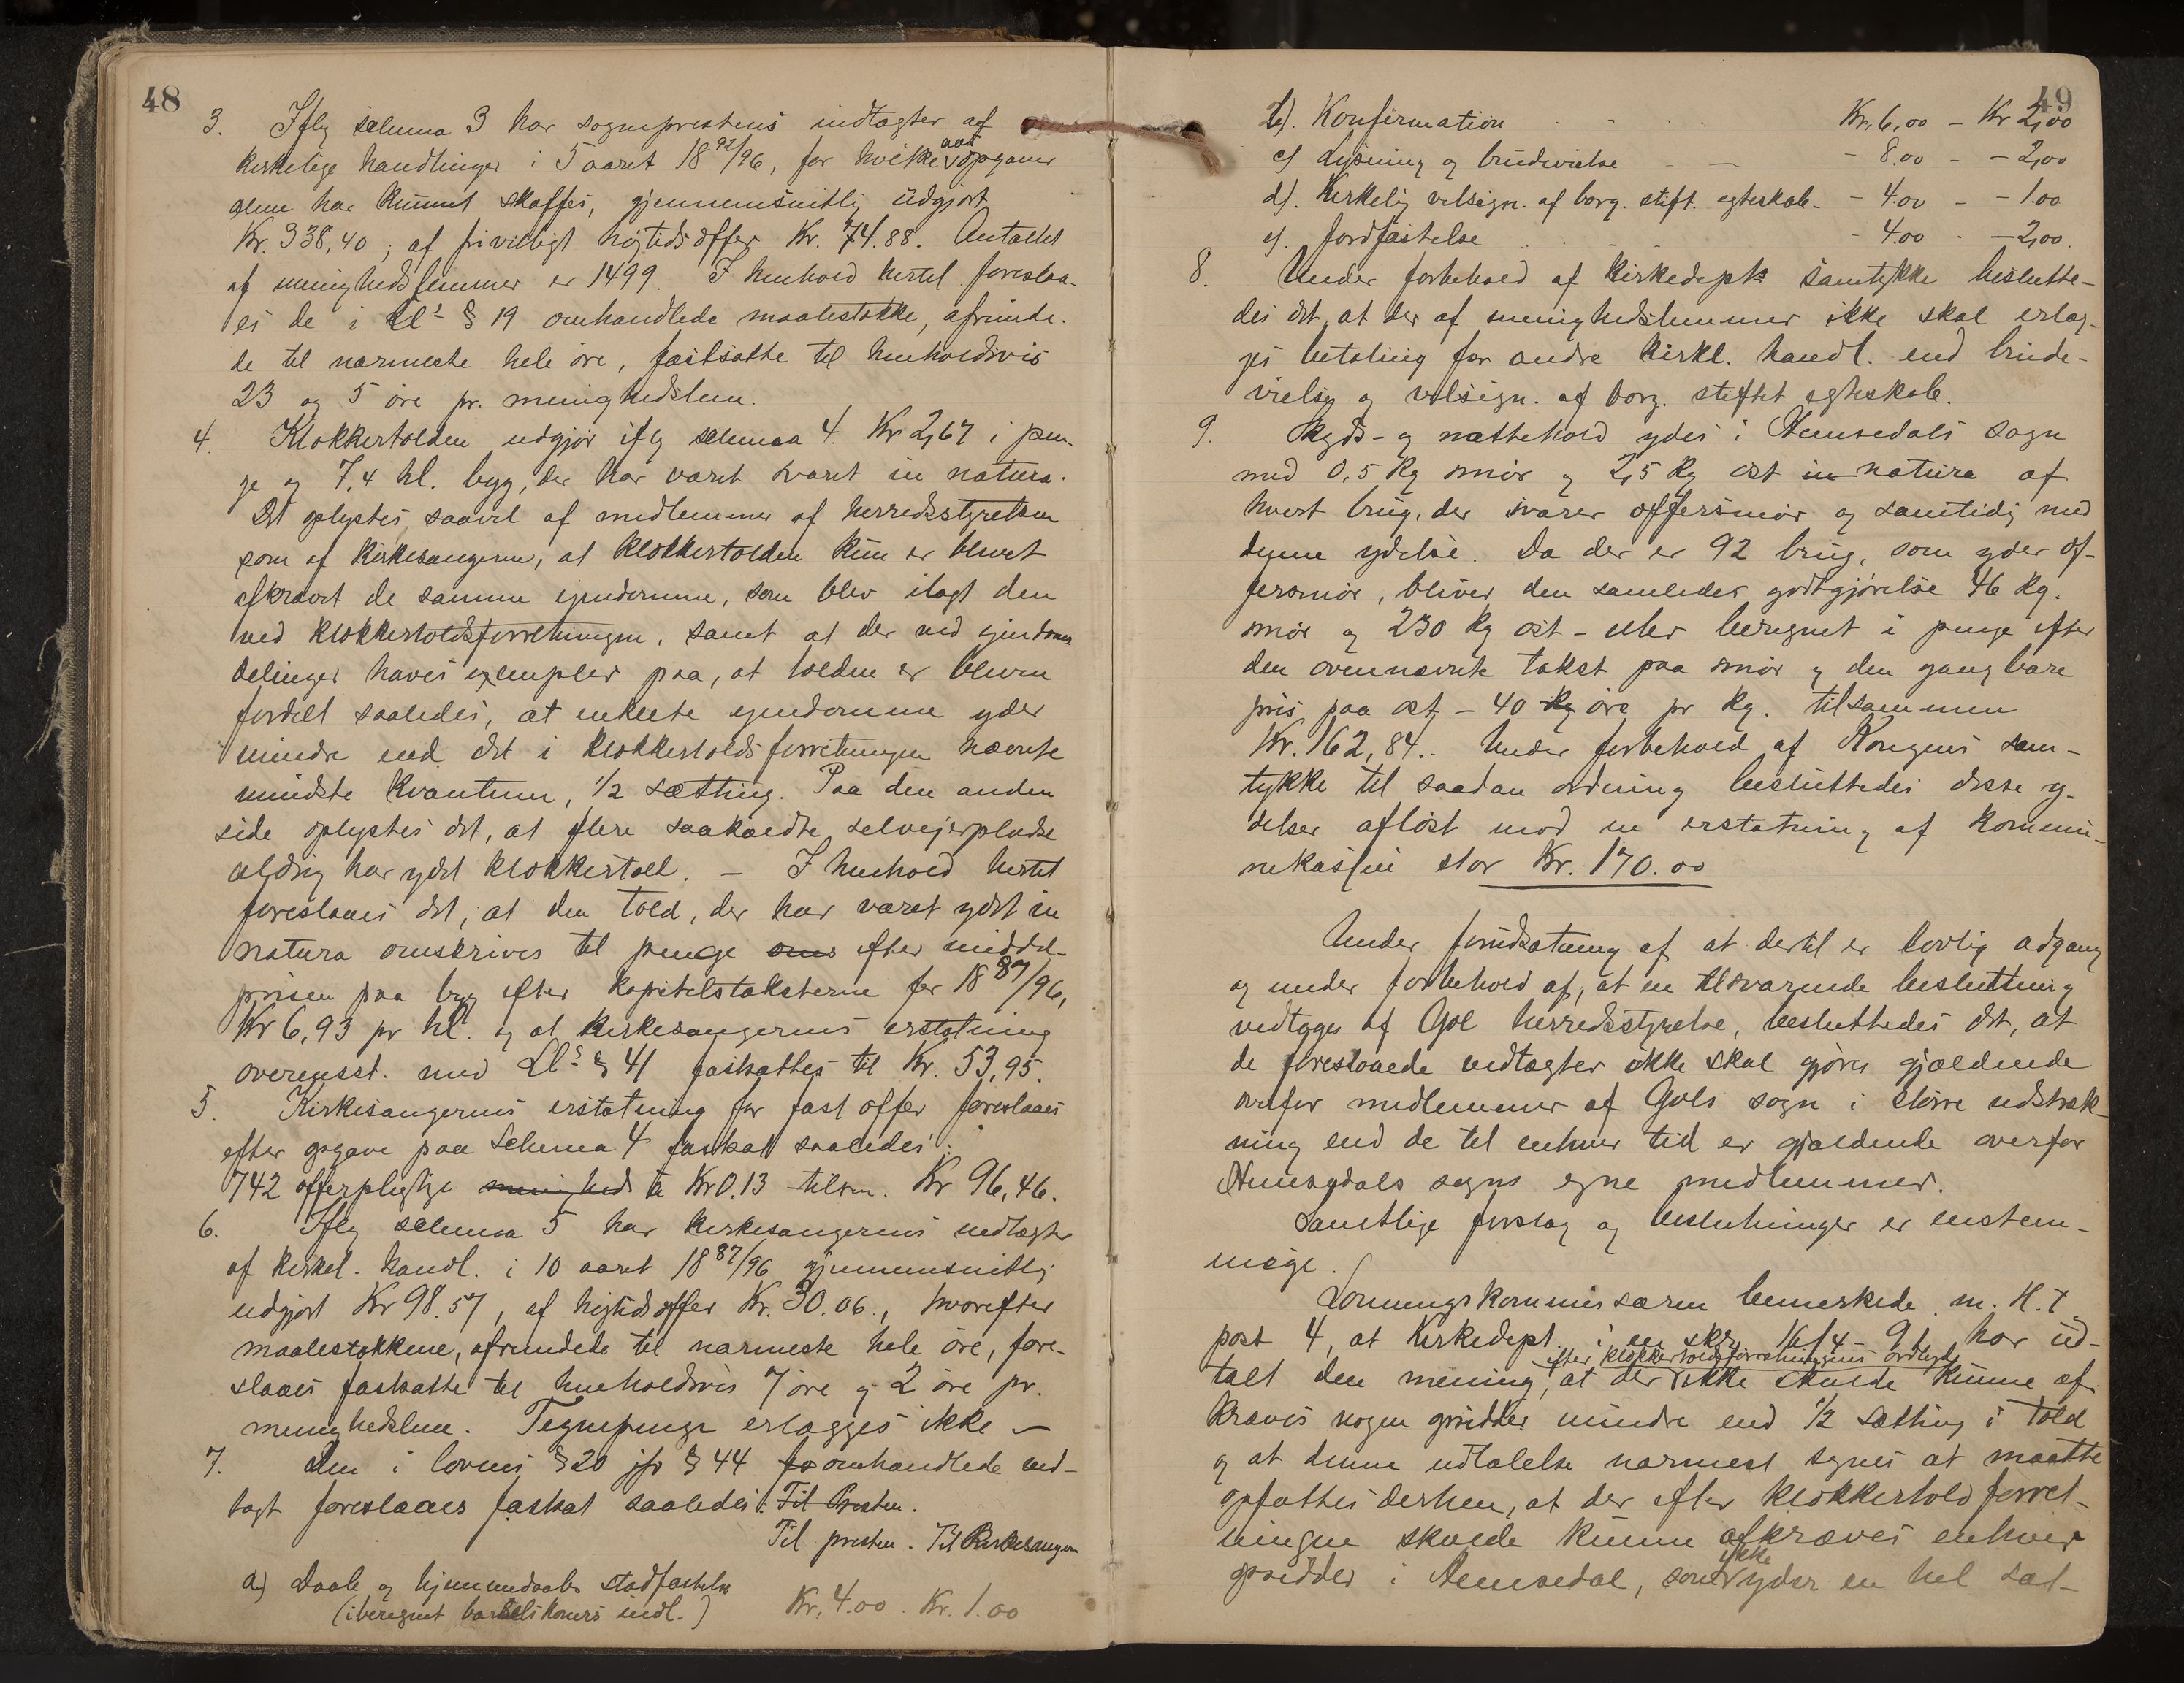 48
3. Iflg schema 3 har sogneprestens indtægter af
kirkelige handlinger i 5 aaret 18 92/96, for hvilke aar opgaver
alene har kunnet skaffes, gjennemsnitlig udgjort
Kr. 338,40; af frivilligt højtidsoffer Kr. 74.88. Antallet
af menighedslemmer er 1499. I henhold hertil foreslaa-
es de i Ll's § 19 omhandlede maalestokke, afrunde-
de til nærmeste hele øre, fastsatte til henholdsvis
23 og 5 øre pr. menighedslem.
4. Klokkertolden udgjør iflg schema 4. Kr 2,67 i pen-
ge og 7,4 hl. byg, der har været svaret in natura.
Det oplystes, saavel af medlemmer af herredsstyrelsen
som af kirkesangeren, at klokkertolden kun er blevet
afkrævet de samme ejendomme, som blev ilagt den
ved klokkertoldsforretningen, samt at der ved ejendoms
delinger haves exempler paa, at tolden er bleven
fordelt saaledes, at enkelte ejendomme yder
mindre end det i klokkertoldsforretningen nævnte
mindste kvantum, 1/2 sætting. Paa den anden
side oplystes det, at flere saakaldte selvejerpladse
aldrig har ydet klokkertold. — I henhold hertil
foreslaaes det, at den told, der har været ydet in
natura omskrives til penge efter middel-
prisen paa byg efter kapitelstaksterne for 18 87/96,
Kr 6,93 pr hl. og at kirkesangerens erstatning
overensst. med Ll's § 41 fastsættes til Kr. 53,95.
5. Kirkesangerens erstatning for fast offer foreslaaes
efter opgave paa schema 4 fastsat saaledes:
742 offerpligtige menighed à Kr 0.13 tilsm. Kr 96,46.
6. Iflg schema 5 har kirkesangerens indtægter
af kirkel. handl. i 10 aaret 18 87/96 gjennemsnitlig
udgjort Kr 98.57, af højtidsoffer Kr. 30.06., hvorefter
maalestokkene, afrundede til nærmeste hele øre, fore-
slaaes fastsatte til henholdsvis 7 øre og 2 øre pr.
menighedslem. Tegnepenge erlægges ikke —
7. Den i lovens § 20 jfr § 44 omhandlede ved-
tægt foreslaaes fastsat saaledes: Til Presten.
Til presten. Til Kirkesangeren
a) Daab og hjemmedaabs stadfæstelse
(iberegnet barselkoners indl.) Kr. 4.00. Kr. 1.00
49
b). Konfirmation Kr. 6,00 – Kr 2,00
c) Lysning og brudevielse – 8.00 – – 2,00
d). Kirkelig velsign. af borg. stift. egteskab. – 4.00 – – 1.00
e). Jordfæstelse – 4.00 – – 2,00.
8. Under forbehold af Kirkedepts samtykke beslutte-
des det, at der af menighedslemmer ikke skal erlæg-
ges betaling for andre kirkl. handl. end brude-
vielse og velsign. af borg. stiftet egteskab.
9. Skyds- og nattehold ydes i Hemsedals sogn
med 0,5 kg smør og 2,5 kg ost in natura af
hvert brug, der svarer offersmør og samtidig med
denne ydelse. Da der er 92 brug, som yder of-
fersmør, bliver den samlede godtgjørelse 46 kg.
smør og 230 kg ost – eller beregnet i penge efter
den ovennævnte takst paa smør og den gangbare
pris paa ost – 40 kg øre pr kg. tilsammen
Kr. 162,84. Under forbehold af Kongens sam-
tykke til saadan ordning besluttedes disse y-
delser afløst mod en erstatning af kommu-
nekassen stor Kr. 170.00
Under forudsætning af at dertil er lovlig adgang
og under forbehold af, at en tilsvarende beslutning
vedtages af Gol herredsstyrelse, besluttedes det, at
de foreslaaede vedtægter ikke skal gjøres gjældende
overfor medlemmer af Gols sogn i større udstræk-
ning end de til enhver tid er gjældende overfor
Hemsedals sogns egne medlemmer.
Samtlige forslag og beslutninger er enstem-
mige.
Lønningskommissæren bemerkede m. H. t.
post 4, at Kirkedept. i en skr. 16/4 – 91 har ud-
talt den mening, at der efter klokkertoldsforretningens ordlyd ikke skulde kunne af-
kræves nogen opsidder mindre end 1/2 sætting i told
og at denne udtalelse nærmest synes at maatte
opfattes derhen, at der efter klokkertoldforret-
ningen skulde kunne afkræves enhver
opsidder i Hemsedal, som ikke yder en hel sæt-